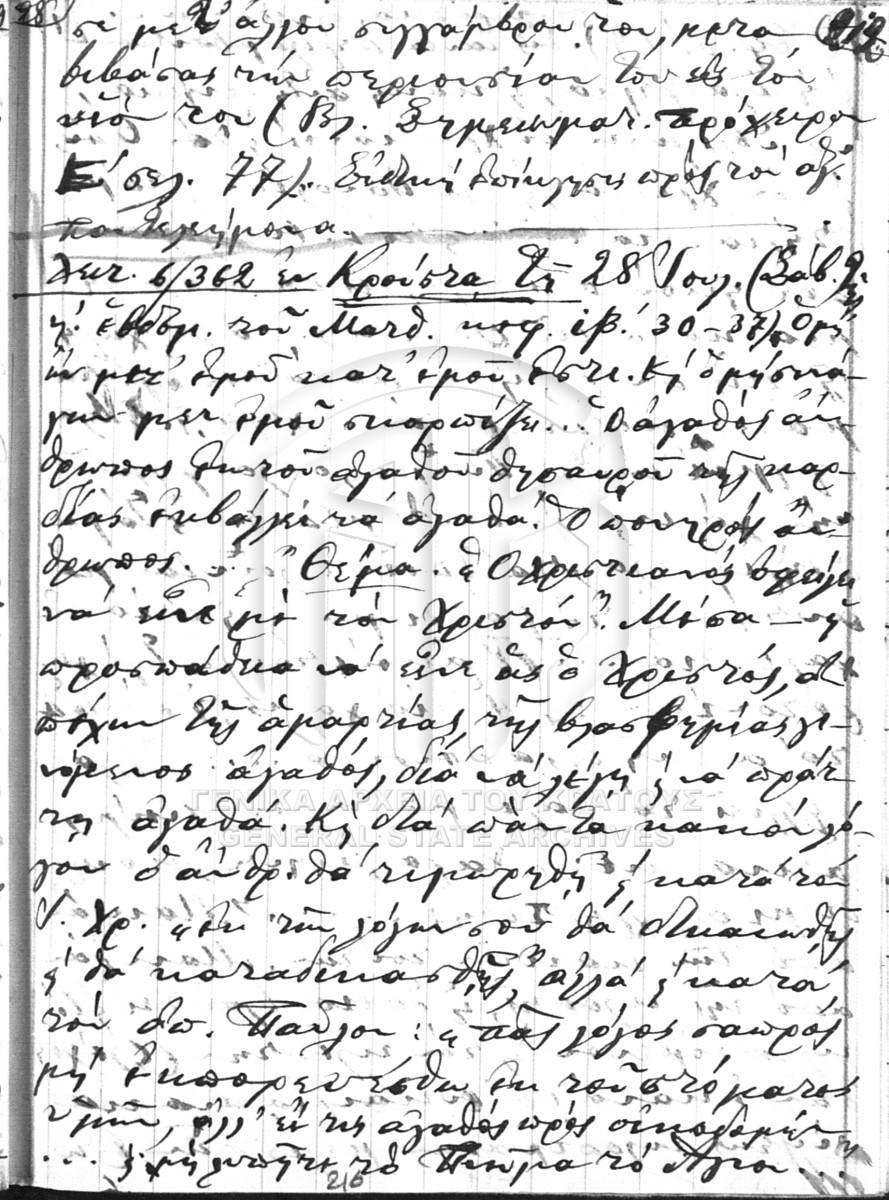 28)
σε μετ' άλλου συγγάμβρου του, μετα
βιβάσας την περιουσίαν του εις τον
υιόν του (Βλ. Σημειωματ. πρόχειρον
Ε' σελ. 77). Ειδική επίκλησις προς τον άγ.
Παντελεήμονα.
Λειτ. 6/362 εν Κρούστα τη 28 Ιουλ. (Σάβ.
η' εβδομ. του Ματθ. κεφ. ιβ' 30-37) Ο μη
ων μετ' εμού κατ' εμού εστι. Κ' ο μη συνά-
γων μετ' εμού σκορπίζει... Ο αγαθός άν-
θρωπος εκ του αγαθού θησαυρού της καρ-
δίας εκβάλλει τα αγαθά. Ο πονηρός άν-
θρωπος... Θέμα. "Ο Χριστιανός οφείλει
να είνε με τον Χριστόν". Μέσα — η
προσπάθεια να είνε ως ο Χριστός, α
πέχων της αμαρτίας, της βλασφημίας γι-
νόμενος αγαθός, διά να λέγη κ' να πράτ
τη αγαθά. Κ' διά πάντα κακόν λό-
γον ο άνθρ. θα τιμωρηθή κ' κατά τον
Ι. Χρ. "εκ των λόγων σου θα δικαιωθής
κ' θα καταδικασθής", αλλά κ' κατά
τον απ. Παύλον: "πας λόγος σαπρός
μη εκπορευέσθω εκ του στόματος
υμών, αλλ' εί τις αγαθός προς οικοδομήν
... κ' μη λυπήτε το Πνεύμα το Άγιον..."
216
ΓΕΝΙΚΑ ΑΡΧΕΙΑ ΤΟΥ ΚΡΑΤΟΥΣ
GENERAL STATE ARCHIVES